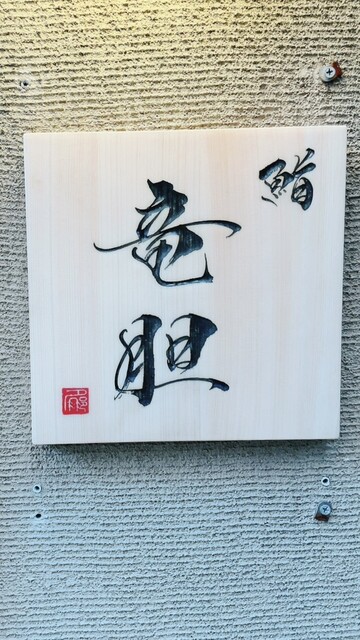 鮨
竜胆